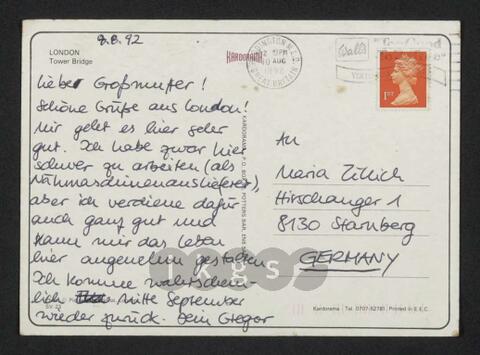 LONDON
Tower Bridge
9.8.92
Lieber Großmutter!
Schöne Grüße aus London!
Mir geht es hier sehr
gut. Ich habe zwar hier
schwer zu arbeiten (als
Nähmaschinenauslieferer),
aber ich verdiene dafür
auch ganz gut und
kann mir das Leben
hier angenehm gestalten
Ich komme wahrschein-
lich Mitte September
wieder zurück. Dein Gregor
KARDORAMA
KARDORAMA, P.O. BOX POTTERS BAR,
GREAT BRITAIN
AUG
1992
Walls
1ST
An
Maria Zillich
Hirschanger 1
8130 Starnberg
GERMANY
ikgs
Kardorama | Tel. 0707-52781 | Printed in E.E.C.